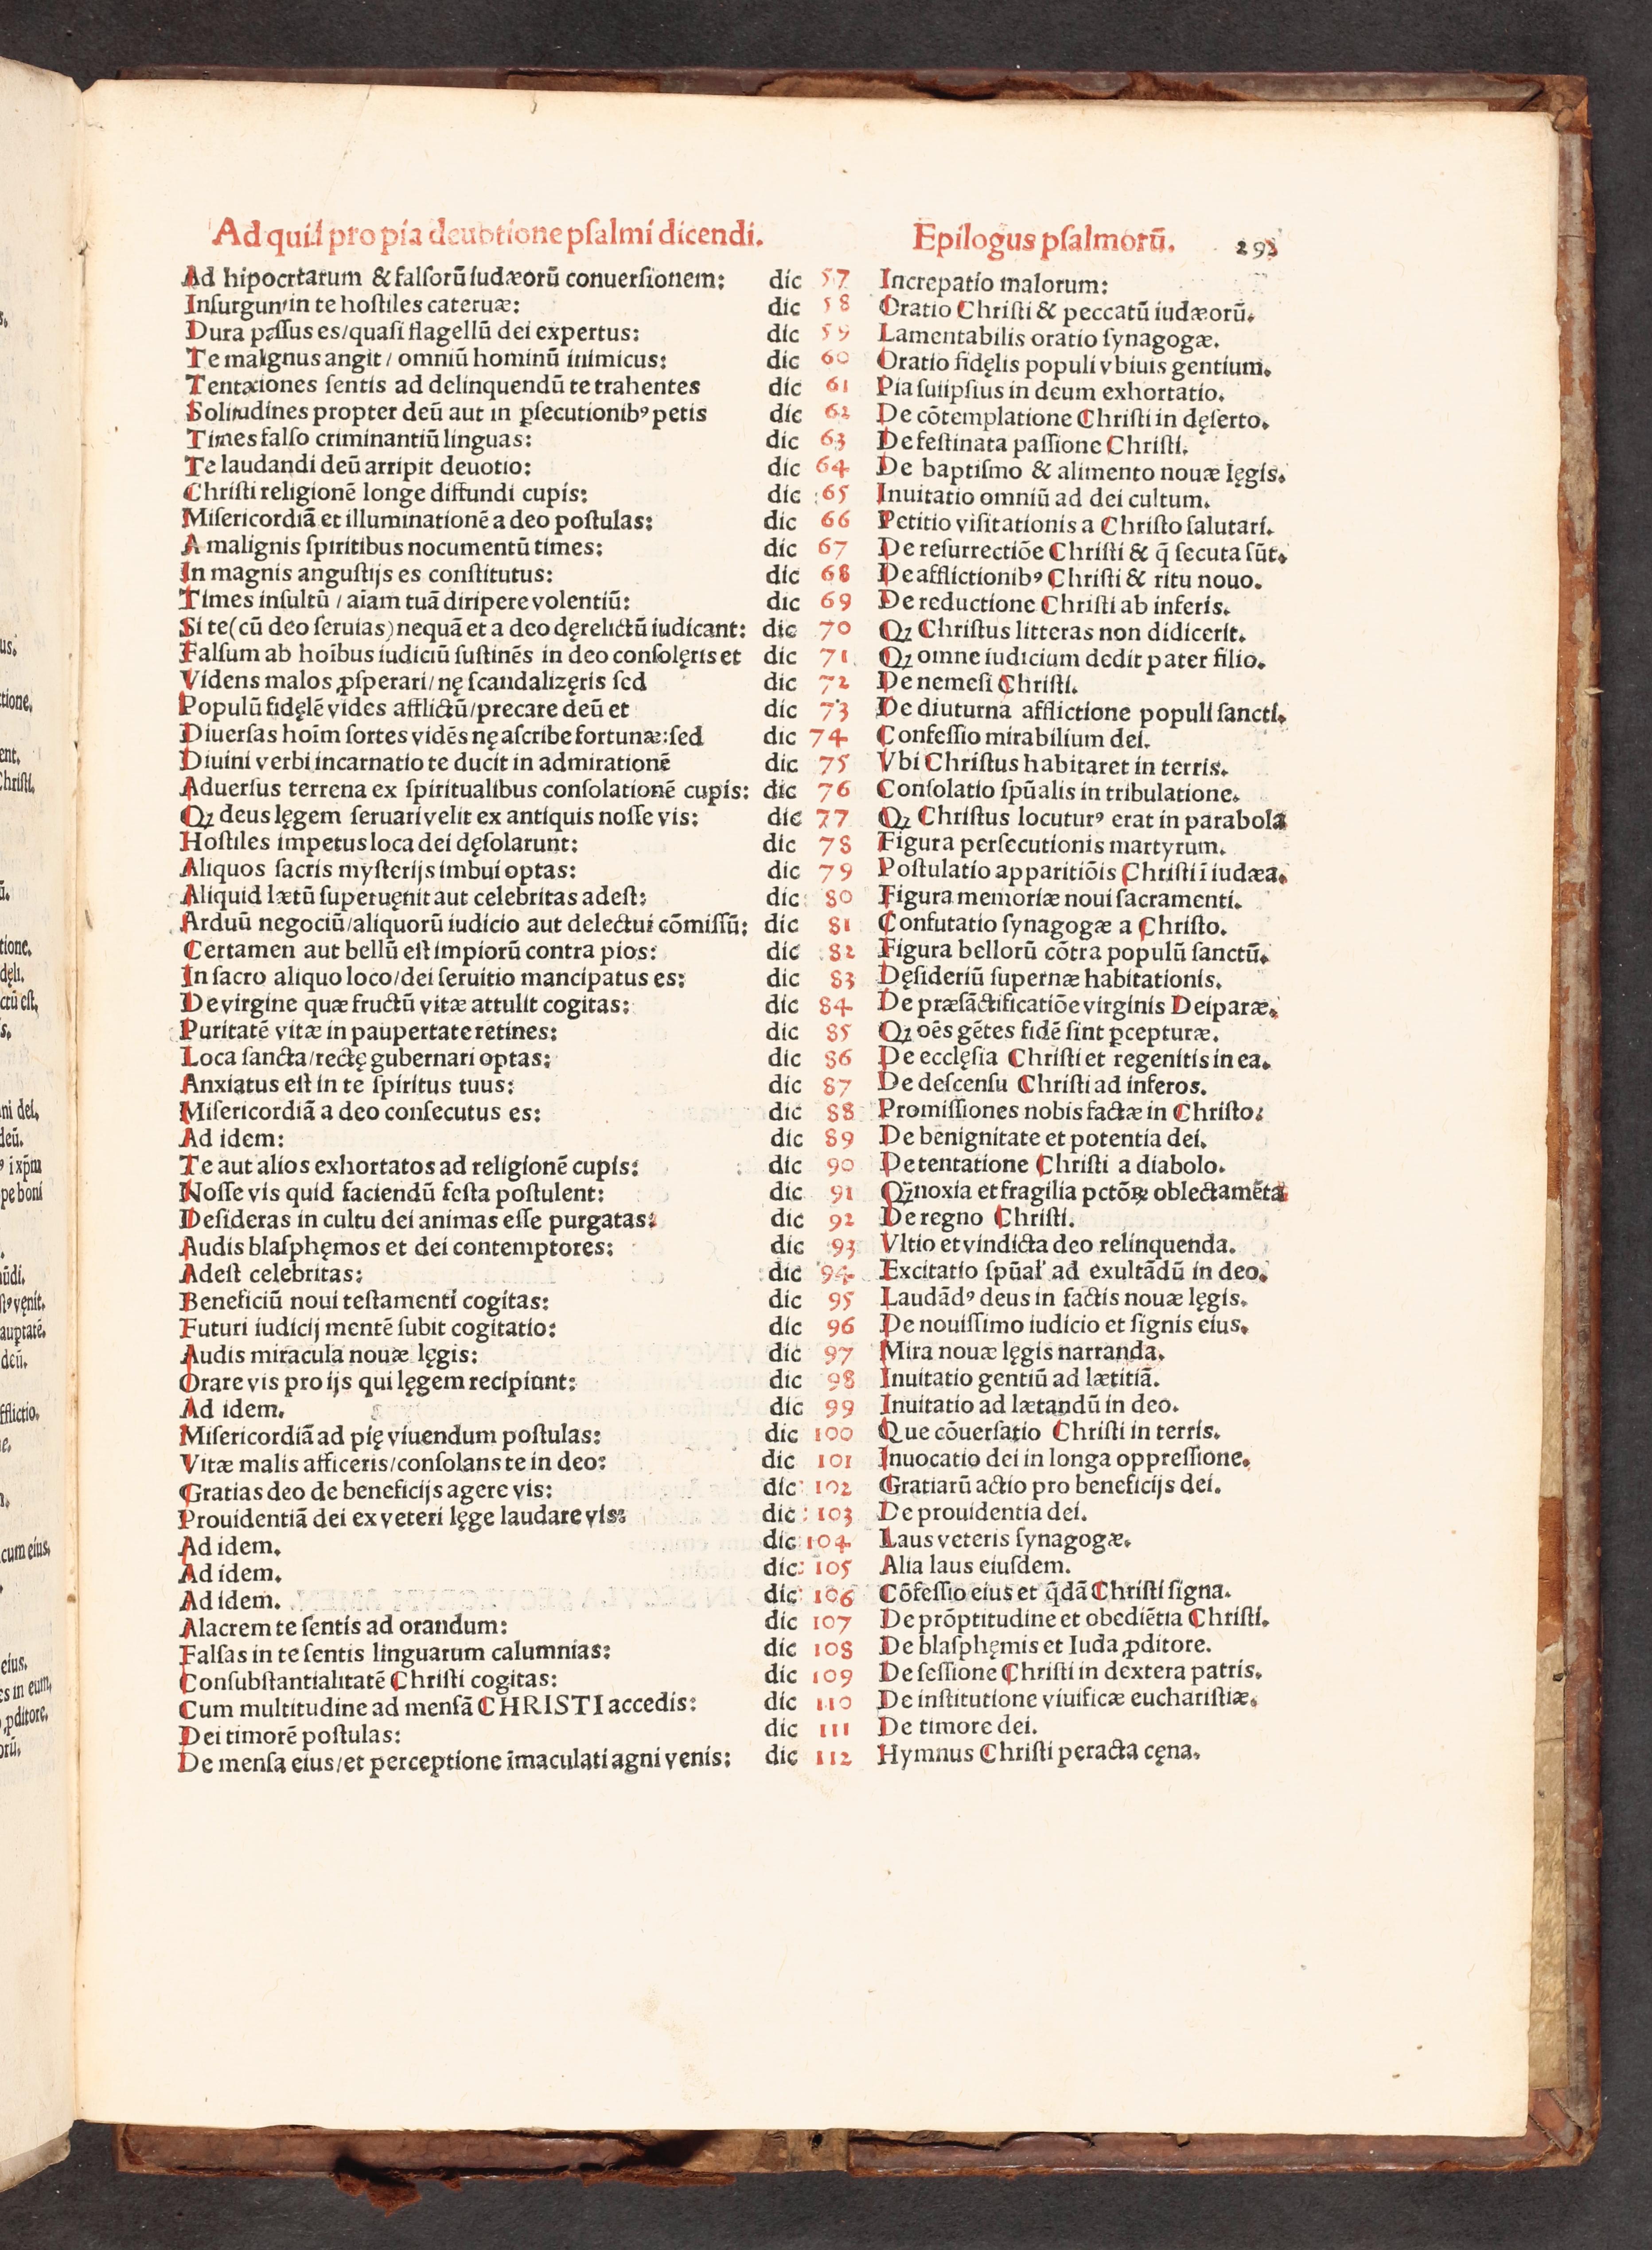 Ad quid pro pia deuotione pſalmi dicendi. Epilogus pſalmorū. 293
Ad hipocrtarum & falſorū iudæorū conuerſionem: dic 57 Increpatio malorum:
Inſurgunt in te hoſtiles cateruæ: dic 58 Oratio Chriſti & peccatū iudæorū.
Dura paſſus es/quaſi flagellū dei expertus: dic 59 Lamentabilis oratio ſynagogæ.
Te malgnus angit / omniū hominū inimicus: dic 60 Oratio fidęlis populi vbiuis gentium.
Tentaiones ſentis ad delinquendū te trahentes dic 61 Pia ſuiipſius in deum exhortatio.
Solitudines propter deū aut in ꝑſecutionibꝰ petis dic 62 De cōtemplatione Chriſti in dęſerto.
Times falſo criminantiū linguas: dic 63 De feſtinata paſſione Chriſti.
Te laudandi deū arripit deuotio: dic 64 De baptiſmo & alimento nouæ lęgis.
Chriſti religionē longe diffundi cupis: dic :65 Inuitatio omniū ad dei cultum.
Miſericordiā et illuminationē a deo poſtulas: dic 66 Petitio viſitationis a Chriſto ſalutari.
A malignis ſpiritibus nocumentū times: dic 67 De reſurrectiōe Chriſti & q̄ ſecuta ſūt.
In magnis anguſtijs es conſtitutus: dic 68 De afflictionibꝰ Chriſti & ritu nouo.
Times inſultū / aīam tuā diripere volentiū: dic 69 De reductione Chriſti ab inferis.
Si te(cū deo ſeruias)nequā et a deo dęrelictū iudicant: dic 70 Qꝫ Chriſtus litteras non didicerit.
Falſum ab hoībus iudiciū ſuſtinēs in deo conſolęris et dic 71 Qꝫ omne iudicium dedit pater filio.
Videns malos ꝓſperari/nę ſcandalizęris ſed dic 72 De nemeſi Chriſti.
Populū fidęlē vides afflictū/precare deū et dic 73 De diuturna afflictione populi ſancti.
Diuerſas hoīm ſortes vidēs nę aſcribe fortunæ:ſed dic 74 Confeſſio mirabilium dei.
Diuini verbi incarnatio te ducit in admirationē dic 75 Vbi Chriſtus habitaret in terris.
Aduerſus terrena ex ſpiritualibus conſolationē cupis: dic 76 Conſolatio ſpūalis in tribulatione.
Qꝫ deus lęgem ſeruari velit ex antiquis noſſe vis: dic 77 Qꝫ Chriſtus locuturꝰ erat in parabola
Hoſtiles impetus loca dei dęſolarunt: dic 78 Figura perſecutionis martyrum.
Aliquos ſacris myſterijs imbui optas: dic 79 Poſtulatio apparitiōis Chriſti ī iudæa.
Aliquid lætū ſuperuęnit aut celebritas adeſt: dic: 80 Figura memoriæ noui ſacramenti.
Arduū negociū/aliquorū iudicio aut delectui cōmiſſū: dic 81 Confutatio ſynagogæ a Chriſto.
Certamen aut bellū eſt impiorū contra pios: dic :82 Figura bellorū cōtra populū ſanctū.
In ſacro aliquo loco/dei ſeruitio mancipatus es: dic 83 Dęſideriū ſupernæ habitationis.
De virgine quæ fructū vitæ attulit cogitas: dic 84 De præſāctificatiōe virginis Deiparæ.
Puritatē vitæ in paupertate retines: dic 85 Qꝫ oēs gētes fidē ſint ꝑcepturæ.
Loca ſancta/rectę gubernari optas: dic 86 De ecclęſia Chriſti et regenitis in ea.
Anxiatus eſt in te ſpiritus tuus: dic 87 De deſcenſu Chriſti ad inferos.
Miſericordiā a deo conſecutus es: dic 88 Promiſſiones nobis factæ in Chriſto:
Ad idem: dic 89 De benignitate et potentia dei.
Te aut alios exhortatos ad religionē cupis: dic 90 De tentatione Chriſti a diabolo.
Noſſe vis quid faciendū feſta poſtulent: dic 91 Qꝫ noxia et fragilia pctōꝝ oblectamēta
Deſideras in cultu dei animas eſſe purgatas: dic 92 De regno Chriſti.
Audis blaſphęmos et dei contemptores: dic 93 Vltio et vindicta deo relinquenda.
Adeſt celebritas: dic 94 Excitatio ſpūal' ad exultādū in deo.
Beneficiū noui teſtamenti cogitas: dic 95 Laudādꝰ deus in factis nouæ lęgis.
Futuri iudicij mentē ſubit cogitatio: dic 96 De nouiſſimo iudicio et ſignis eius.
Audis miracula nouæ lęgis: dic 97 Mira nouæ lęgis narranda.
Orare vis pro ijs qui lęgem recipiunt: dic 98 Inuitatio gentiū ad lætitiā.
Ad idem. dic 99 Inuitatio ad lætandū in deo.
Miſericordiā ad pię viuendum poſtulas: dic 100 Que cōuerſatio Chriſti in terris.
Vitæ malis afficeris/conſolans te in deo: dic 101 Inuocatio dei in longa oppreſſione.
Gratias deo de beneficijs agere vis: dic 102 Gratiarū actio pro beneficijs dei.
Prouidentiā dei ex veteri lęge laudare vis: dic : 103 De prouidentia dei.
Ad idem. dic 104 Laus veteris ſynagogæ.
Ad idem. dic: 105 Alia laus eiuſdem.
Ad idem. dic 106 Cōfeſſio eius et q̄dā Chriſti ſigna.
Alacrem te ſentis ad orandum: dic 107 De prōptitudine et obediētia Chriſti.
Falſas in te ſentis linguarum calumnias: dic 108 De blaſphęmis et Iuda ꝓditore.
Conſubſtantialitatē Chriſti cogitas: dic 109 De ſeſſione Chriſti in dextera patris.
Cum multitudine ad menſā CHRISTI accedis: dic 110 De inſtitutione viuificæ euchariſtiæ.
Dei timorē poſtulas: dic 111 De timore dei.
De menſa eius/et perceptione īmaculati agni venis: dic 112 Hymnus Chriſti peracta cęna.